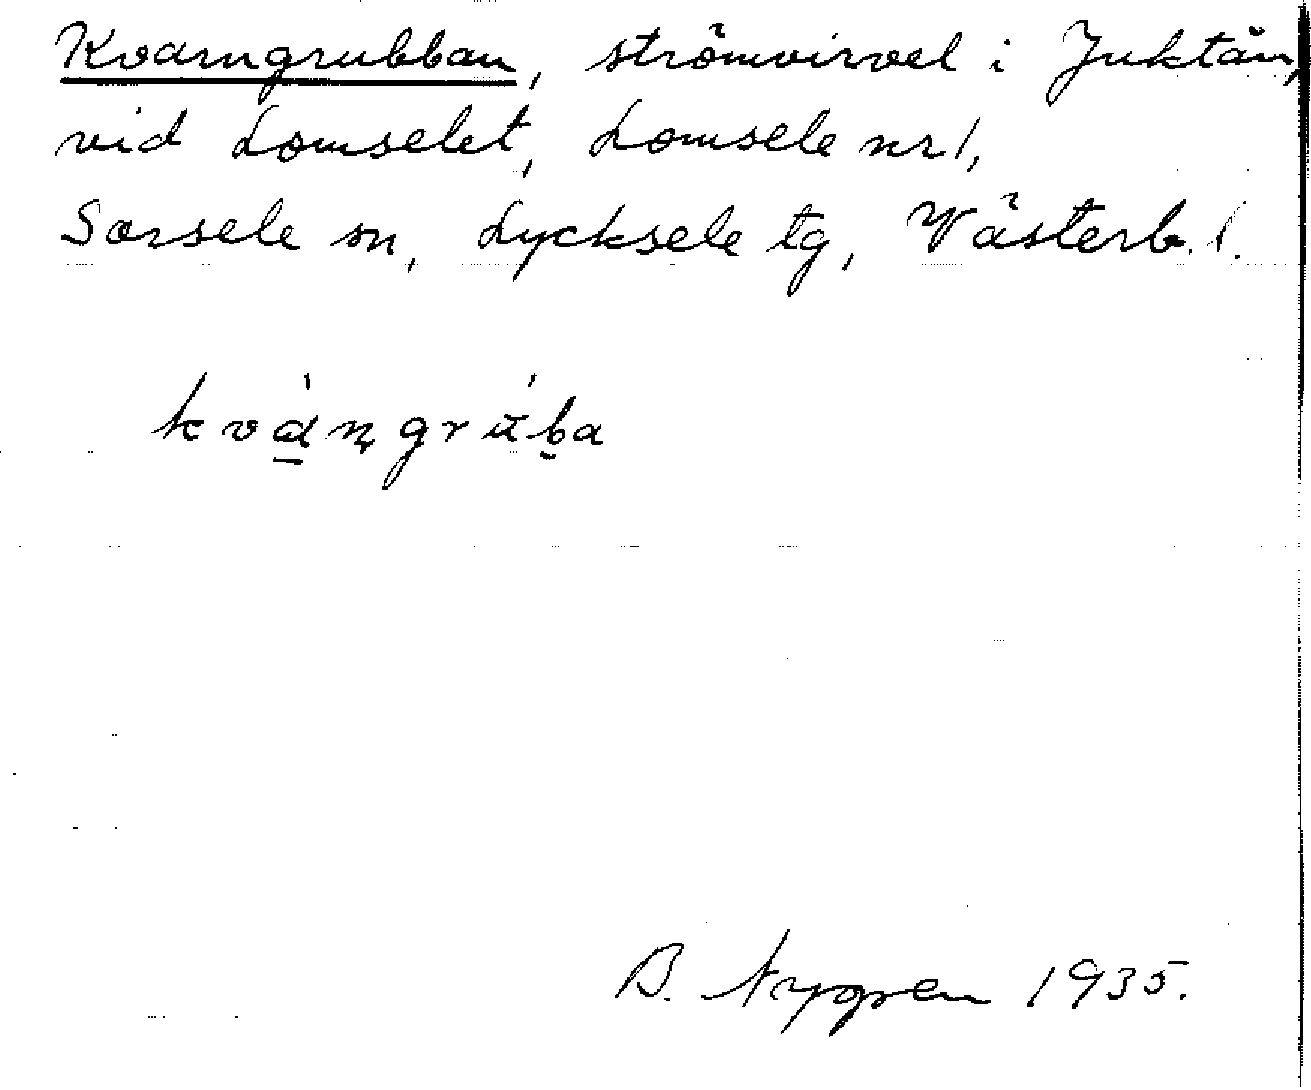 Kvarngrubban, strömvirvel i Juktån,
vid Lomselet, Lomsele nr 1,
Sorsele sn, Lycksele tg, Västerb. l.
B. Nygren 1935.